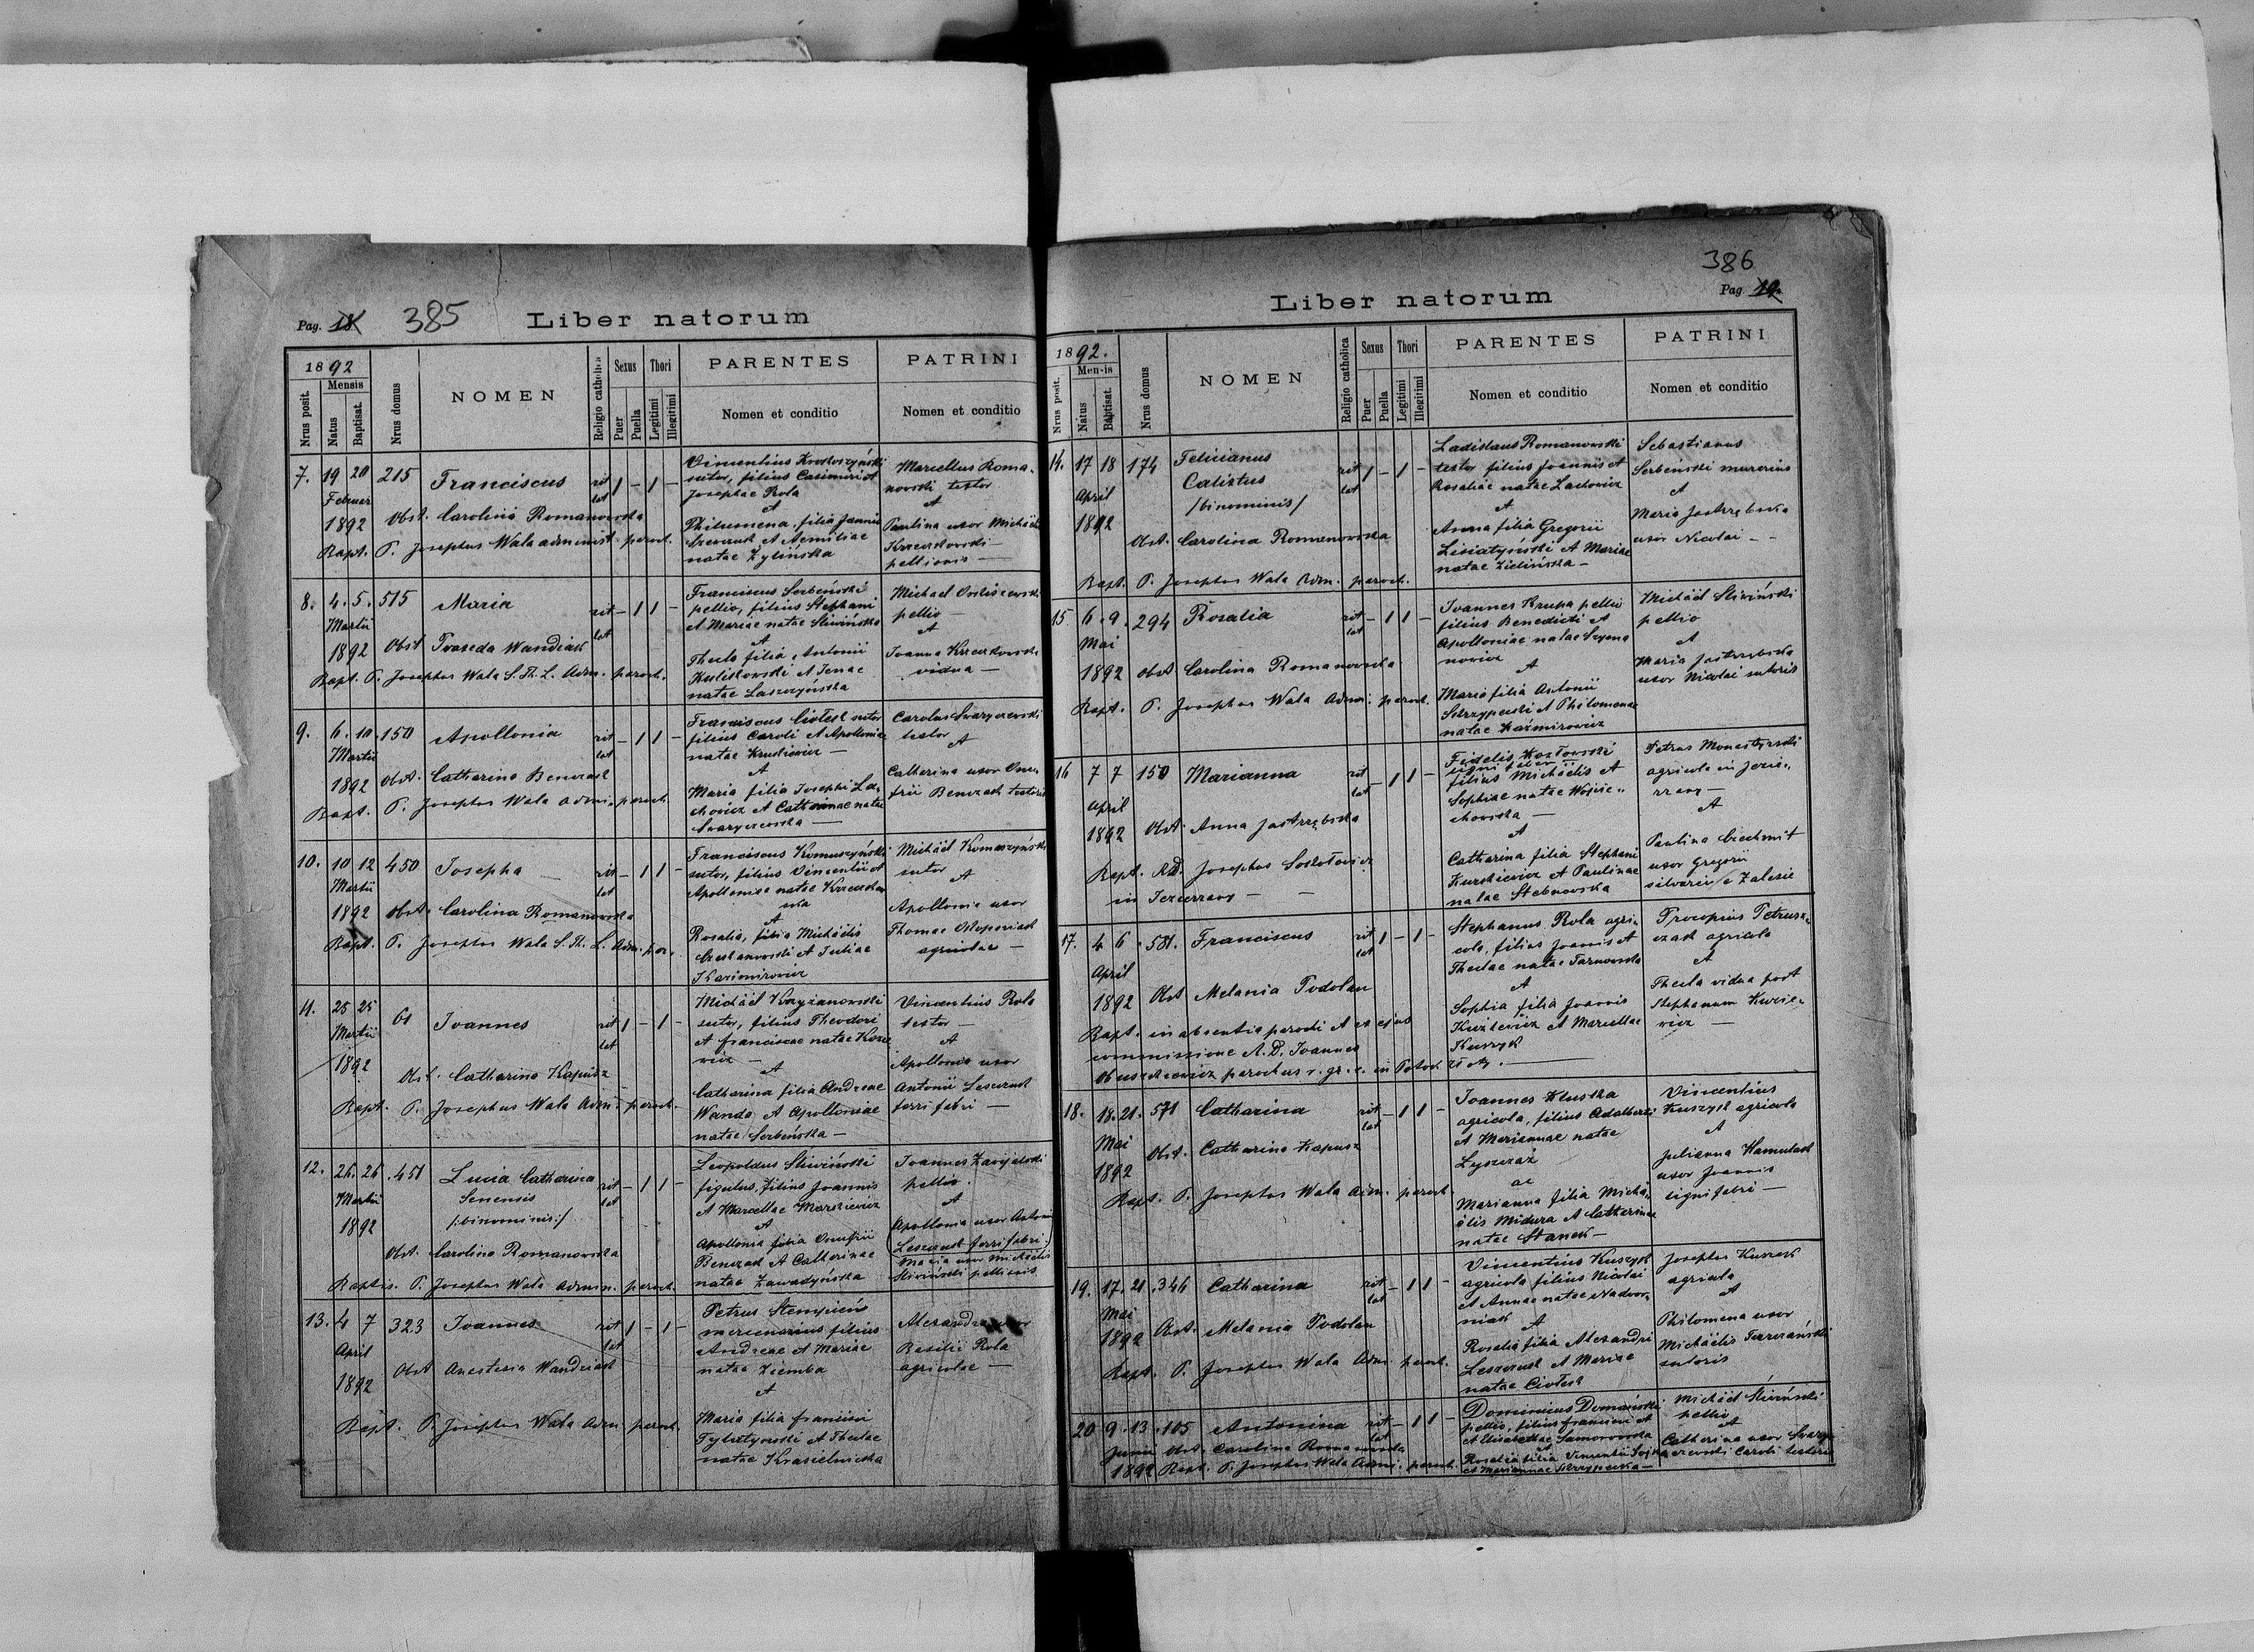 Pag. 18 385 Liber natorum
1892
Mensis
Nrus posit.
Natus
Baptisat.
Nrus domus
NOMEN
Religio catholica
Sexus
Puer
Puella
Thori
Legitimi
Illegitimi
PARENTES
Nomen et conditio
PATRINI
Nomen et conditio
7. 19 20 215 Franciscus rit lat 1 - 1 -
Februar
1892 Obst. Carolina Romanowska
Bapt. P. Josephus Wala administ. paroch.
sutor, filius Casimiri et
Josephae Rola
et
Philumena, filia Joannis
et Aemiliae
natae Żylińska
Marcellus Roma-
nowski textor
et
Paulina uxor Michäelis
Krzeczkowski
pellionis —
8. 4. 5. 515 Maria rit lat - 1 1 -
Martii
1892 Obst Wandiak
Bapt. P. Josephus Wala S. Th. L. Adm. paroch.
Franciscus Serbeński
pellio, filius Stephani
et Mariae natae Śliwińska
et
Thecla filia Antonii
Kuliskowski et
natae Laszczyńska
Michael
pellio —
et
Joanna
vidua —
9. 6. 10. 150 Apollonia rit lat - 1 1 -
Martii
1892 Obst. Catharina Benczak
Bapt. P. Josephus Wala Admin. paroch.
Franciscus Ciołek sutor
filius Caroli et Apolloniae
natae —
et
Maria filia Josephi La-
chowicz et Catharinae natae
Swaryczewska —
Carolus Swaryczewski
textor
et
Catharina uxor Onu-
frii Benczak textoris
10. 10 12 450 Josepha rit lat - 1 1 -
Martii
1892 Obst. Carolina Romanowska
Bapt. P. Josephus Wala S. Th. L. Adm. par.
Franciscus Komuszyński
sutor, filius Vincentii et
Apolloniae natae
ska
et
Rosalia, filia Michäelis
et Juliae
Kazimirowicz
Michäel Komuszyński
sutor
et
Apollonia uxor
Thomae
agricolae —
11. 25 25 61 Joannes rit lat 1 - 1 -
Martii
1892
Obst. Catharina Kapusz
Bapt. P. Josephus Wala Admin. paroch.
Michäel Krzyżanowski
sutor, filius Theodori
et Franciscae natae
wicz —
et
Catharina filia Andreae
Wanda et Apolloniae
natae Serbeńska —
Vincentius Rola
textor —
et
Apollonia uxor
Antonii Leszczuk
ferri fabri —
12. 26. 26. 451 Lucia Catharina rit lat - 1 1 -
Martii Senensis
1892 /:binominis:/
Obst. Carolina Romanowska
Baptis. P. Josephus Wala Admin. paroch.
Leopoldus Śliwiński
figulus, filius Joannis
et Marcellae Marskiewicz
et
Apollonia filia Onufrii
Benczak et Catharinae
natae Zawadyńska
Joannes
pellio.
et
Apollonia uxor Antonii
Leszczuk ferri fabri.
Maria uxor Michäelis
Śliwiński pellionis
13. 4 7 323 Joannes rit lat 1 - 1 -
April
1892 Obst Anastasia Wandiak
Bapt. P. Josephus Wala Adm. paroch.
Petrus Stempień
mercenarius filius
Andreae et Mariae
natae Ziemba
et
Maria filia Francisci
et Theclae
natae Krasielnicka
Alexandra uxor
Basilii Rola
agricolae —
386
Liber natorum Pag. 19.
1892.
Mensis
Nrus posit.
Natus
Baptisat.
Nrus domus
NOMEN
Religio catholica
Sexus
Puer
Puella
Thori
Legitimi
Illegitimi
PARENTES
Nomen et conditio
PATRINI
Nomen et conditio
14. 17 18 174 Felicianus rit lat 1 - 1 -
April Calixtus
1892 /binominis/
Obst. Carolina Romanowska
Bapt. P. Josephus Wala Adm. paroch.
Ladislaus Romanowski
textor filius Joannis et
Rosaliae natae Lachowicz
et
Anna filia Gregorii
Lisiatyński et Mariae
natae Zielińska —
Sebastianus
Serbeński murarius
et
Maria Jastrzębska
uxor Nicolai - -
15 6. 9. 294 Rosalia rit lat - 1 1 -
Mai
1892 Obst Carolina Romanowska
Bapt. P. Josephus Wala Admin. paroch.
Joannes Krupa pellio
filius Benedicti et
Apolloniae natae Szyma
nowicz
et
Maria filia Antonii
Skrzypecki et Philomenae
natae Kaźmirowicz
Michäel Śliwiński
pellio
et
Maria Jastrzębska
uxor Nicolai sutoris
16 7 7 150 Marianna rit lat - 1 1 -
April
1892 Obst. Anna Jastrzębska
Bapt. RD. Josephus Sokołowicz
in Jezierzany — —
Fidelis Kozłowski
ligni faber
filius Michäelis et
Sophiae natae Wojcie-
chowska —
et
Catharina filia Stephani
Kurkiewicz et Paulinae
natae Stebnowska
Petrus Monastyrski
agricola in Jezie-
rzany —
et
Paulina Czechmit
uxor Gregorii
silvarii e Zalesie
17. 4 6. 581. Franciscus rit lat 1 - 1 -
April
1892 Obst Melania Podolan
Bapt. in absentia parochi et ex ejus
commissione A. D. Joannes
parochus r. gr. c. in Potok Złoty. —
Stephanus Rola agri-
cola, filius Joannis et
Theclae natae Tarnowska
et
Sophia filia Joannis
et Marcellae
Kuszyk
Procopius Petrusz-
czak agricola
et
Thecla vidua post
Stephanum Kurcie-
wicz —
18. 18. 21. 571 Catharina rit lat - 1 1 -
Mai
1892 Obst. Catharina Kapusz
Bapt. P. Josephus Wala Adm. paroch.
Joannes Kluska
agricola, filius Adalberti
et Mariannae natae
Łyszczaż
ac
Marianna filia Michä-
ëlis Midura et Catharinae
natae Stanek —
Vincentius
Kuszyk agricola
et
Julianna Hamulak
uxor Joannis
ligni fabri —
19. 17. 21. 346 Catharina rit lat - 1 1 -
Mai
1892 Obst. Melania Podolan
Bapt. P. Josephus Wala Adm. paroch.
Vincentius Kuszyk
agricola filius Nicolai
et Annae natae Nadwor-
niak
et
Rosalia filia Alexandri
Leszczuk et Mariae
natae Ciołek
Josephus Kuszyk
agricola
et
Philomena uxor
Michäelis
sutoris
20 9. 13. 105 Antonina rit lat - 1 1 -
Junii Obst. Carolina Romanowska
1892 Bapt. P. Josephus Wala Admi. paroch.
Dominicus Domański
pellio, filius Francisci et
et Elisabethae Samorowska
et
Rosalia filia Vincentii Sojka
et Mariannae Skrzypecka —
Michäel Śliwiński
pellio
et
Catharina uxor Swary-
czewski Caroli textoris